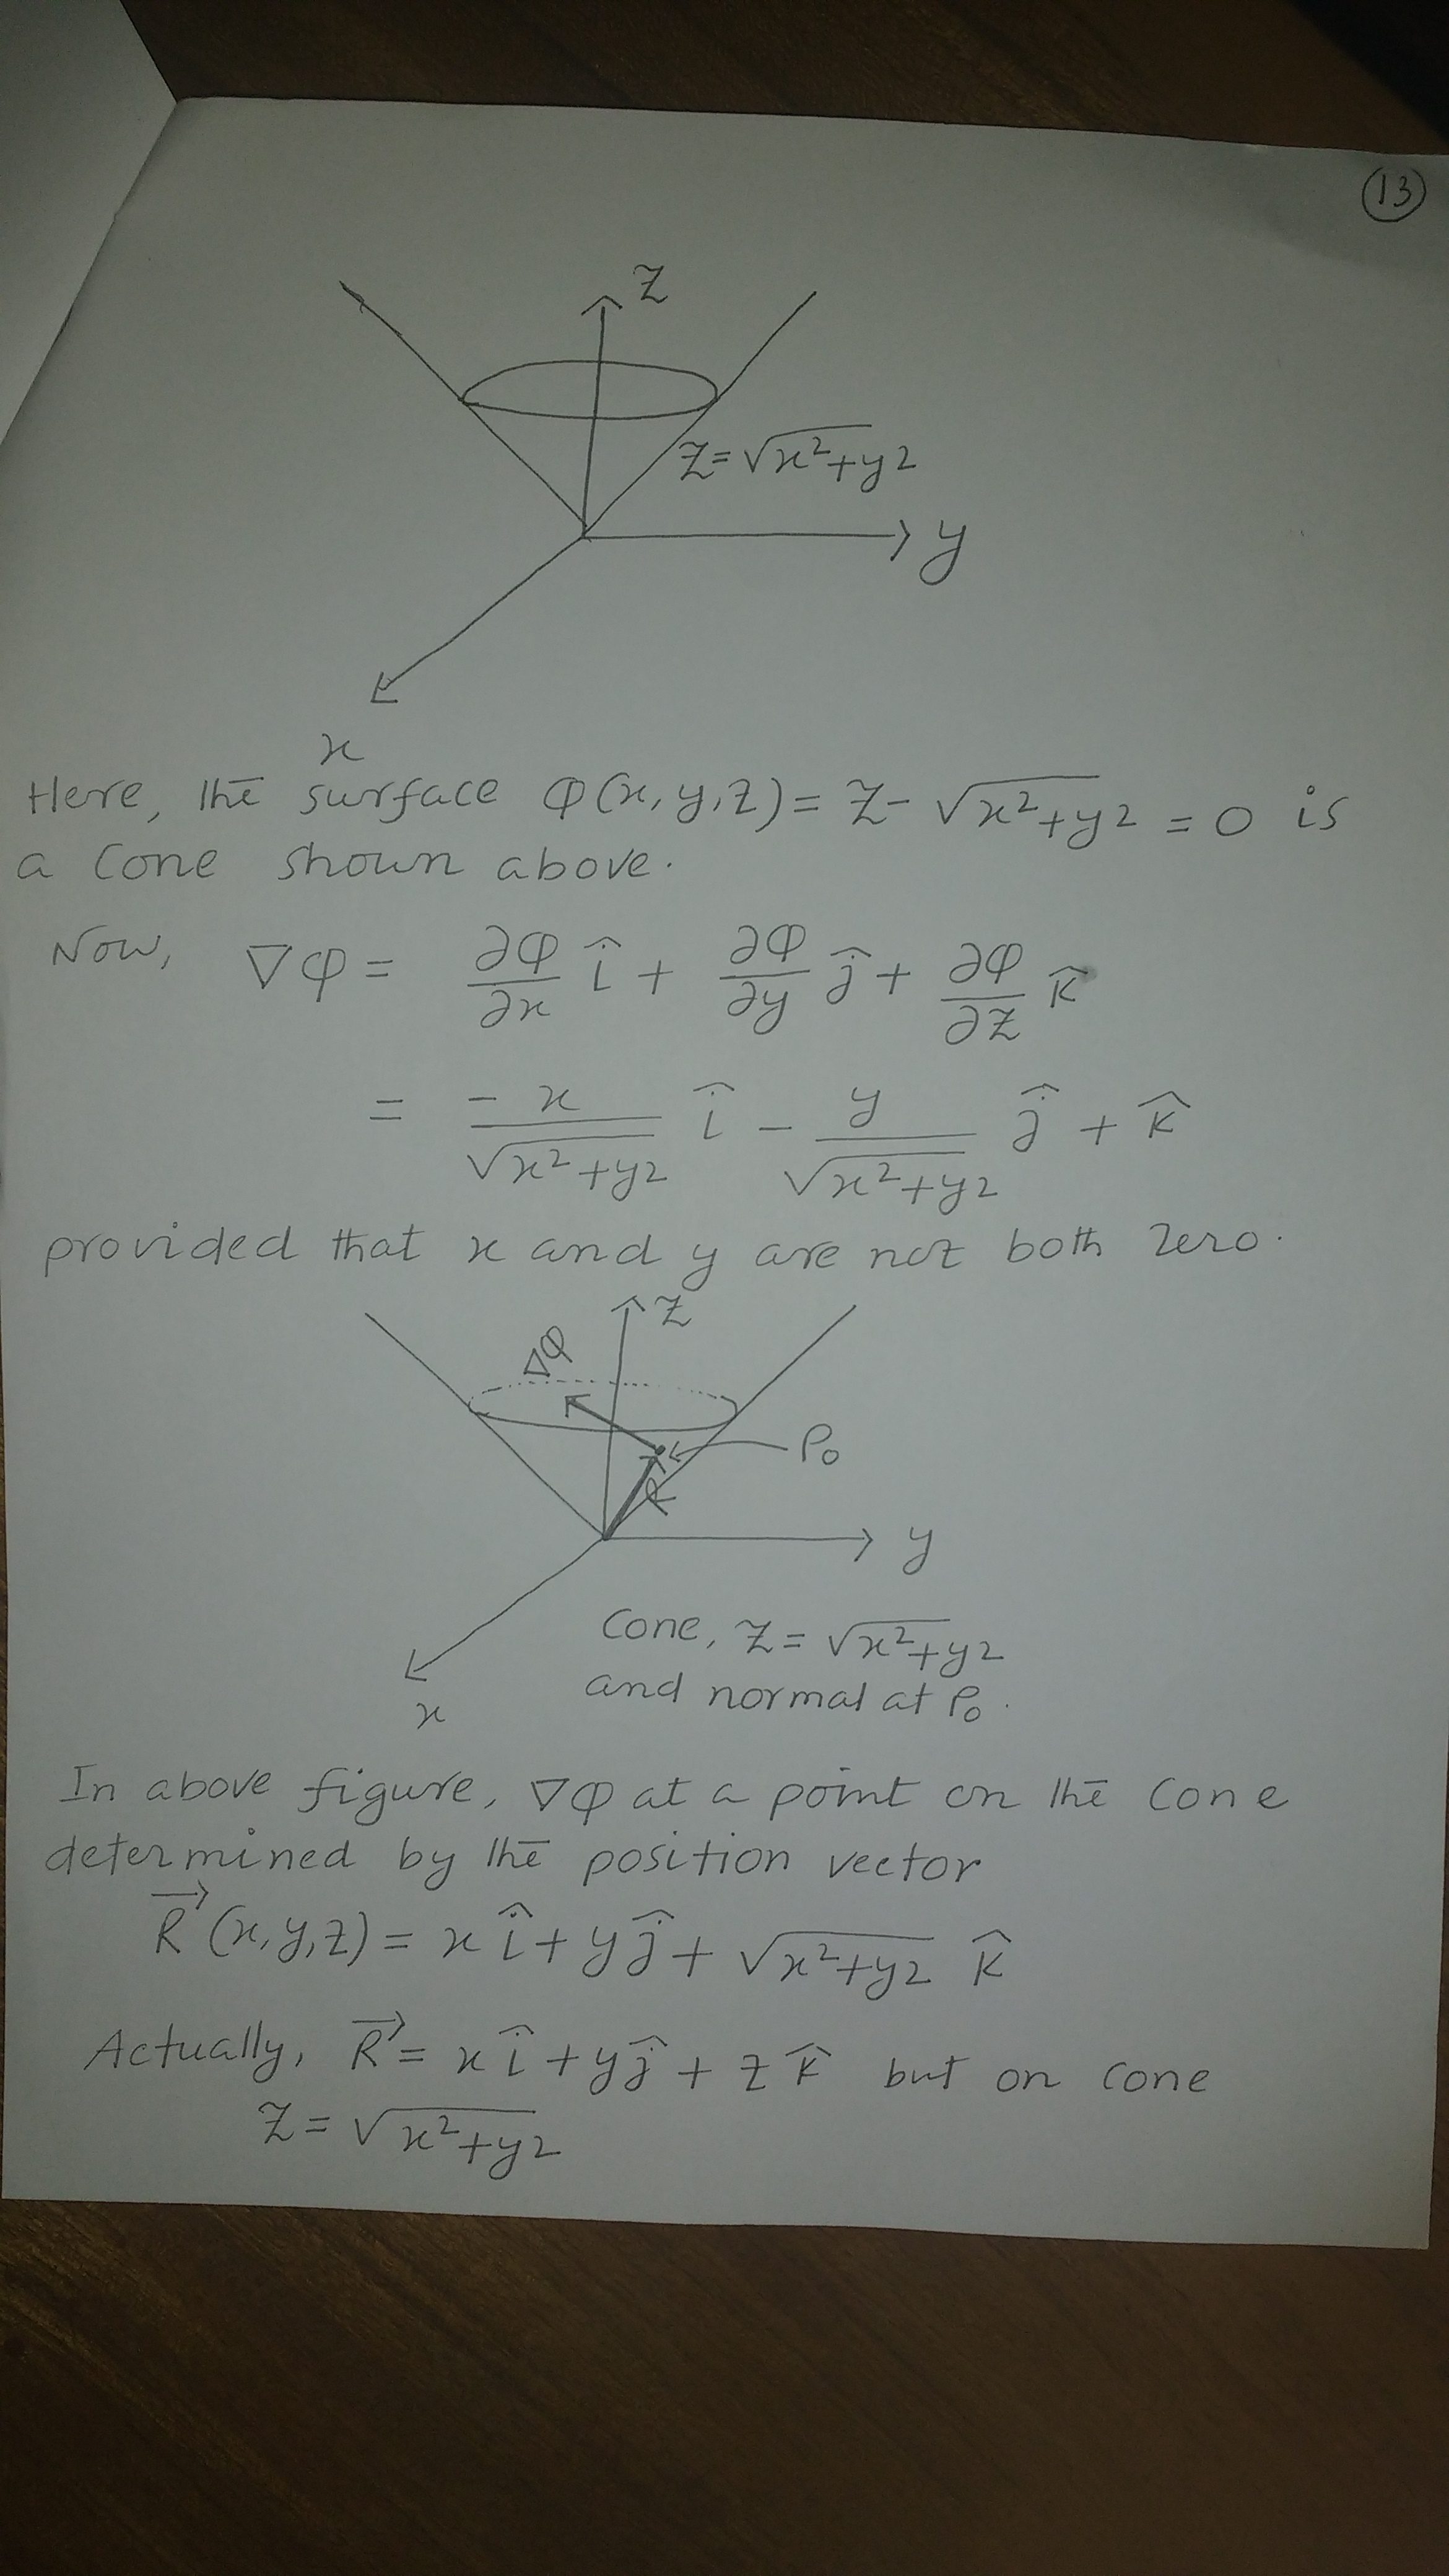 13
z
z=√x²+y²
y
x
Here, the surface φ(x,y,z)= z- √x²+y² = 0 is
a cone shown above.
Now, ∇φ = ∂φ/∂x î + ∂φ/∂y ĵ + ∂φ/∂z k̂
= -x/√x²+y² î - y/√x²+y² ĵ + k̂
provided that x and y are not both zero.
z
∇φ
P₀
R
y
x
Cone, z = √x²+y²
and normal at P₀.
In above figure, ∇φ at a point on the cone
determined by the position vector
R⃗ (x,y,z) = x î + y ĵ + √x²+y² k̂
Actually, R⃗ = x î + y ĵ + z k̂ but on cone
z = √x²+y²